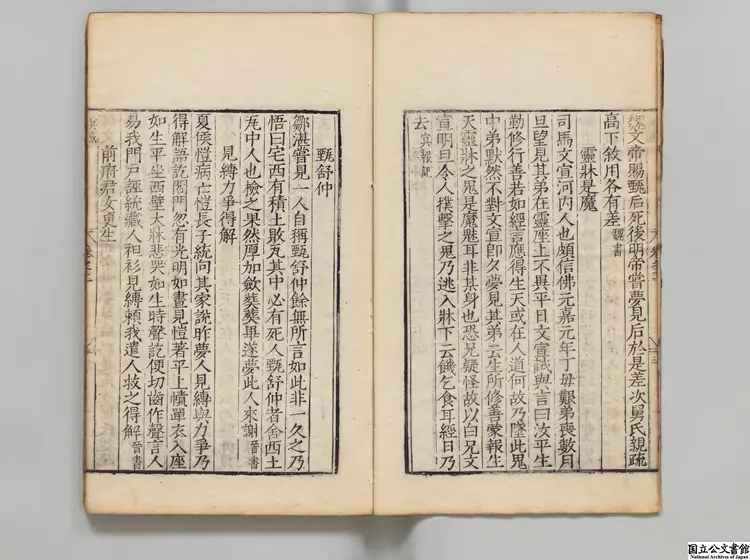 魏文帝賜甄后死後明帝嘗夢見后於是差次舅氏親疏
高下敘用各有差魏書
靈牀是魔
司馬文宣河内人也頗信佛元嘉元年丁毋艱弟喪數月
旦望見其弟在靈座上不異平日文宣試與言曰汝平生
勤修行善若如經言應得生天或在人道何故乃墮此鬼
中弟默然不對文宣卽夕夢見其弟云生所修善蒙報生
天靈牀之鬼是魔魅耳非其身也恐兄疑怪故以白兄文
宣明旦令人撲擊之鬼乃逃入牀下云餓乞食耳經日乃
去冥報記
甄舒仲
鄒湛嘗見一人自稱甄舒仲餘無所言如此非一久之乃
悟曰宅西有積土敗瓦其中必有死人甄舒仲者舍西土
瓦中人也檢之果然厚加斂葬葬畢遂夢此人來謝晉書
見縛力爭得解
夏侯愷病亡愷長子統向其家說昨夢人見縛與力爭乃
得解語訖閤門忽有光明如晝見愷著平上幘單衣入座
如生平坐西壁大牀悲哭如生時聲訖便切齒作聲言人
易我門戸誣統藏人袒衫見縛賴我遣人救之得解晉書
前府君女更生
国立公文書館
National Archives of Japan